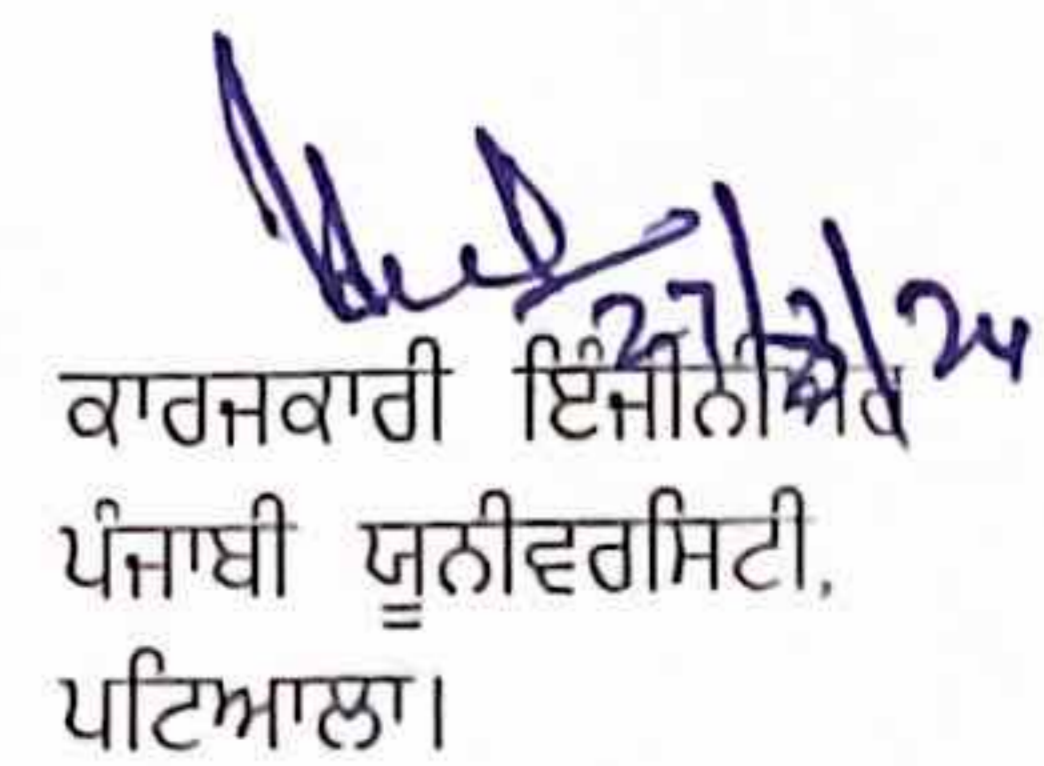 27/2/24
ਕਾਰਜਕਾਰੀ ਇੰਜੀਨੀਅਰ
ਪੰਜਾਬੀ ਯੂਨੀਵਰਸਿਟੀ,
ਪਟਿਆਲਾ।